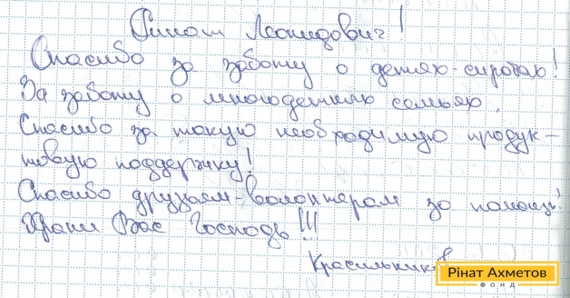 Ринат Леонидович!
Спасибо за заботу о детях-сиротах!
За заботу о многодетных семьях.
Спасибо за такую необходимую продук-
товую поддержку!
Спасибо друзьям-волонтерам за помощь!
Храни Вас Господь!!!
Рінат Ахметов
ФОНД